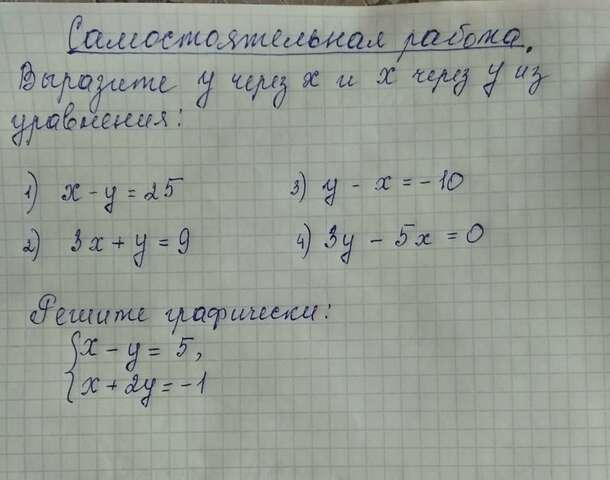 Самостоятельная работа.
Выразите y через x и x через y из
уравнения:
1) x - y = 25
3) y - x = -10
2) 3x + y = 9
4) 3y - 5x = 0
Решите графически:
{x - y = 5,
{x + 2y = -1